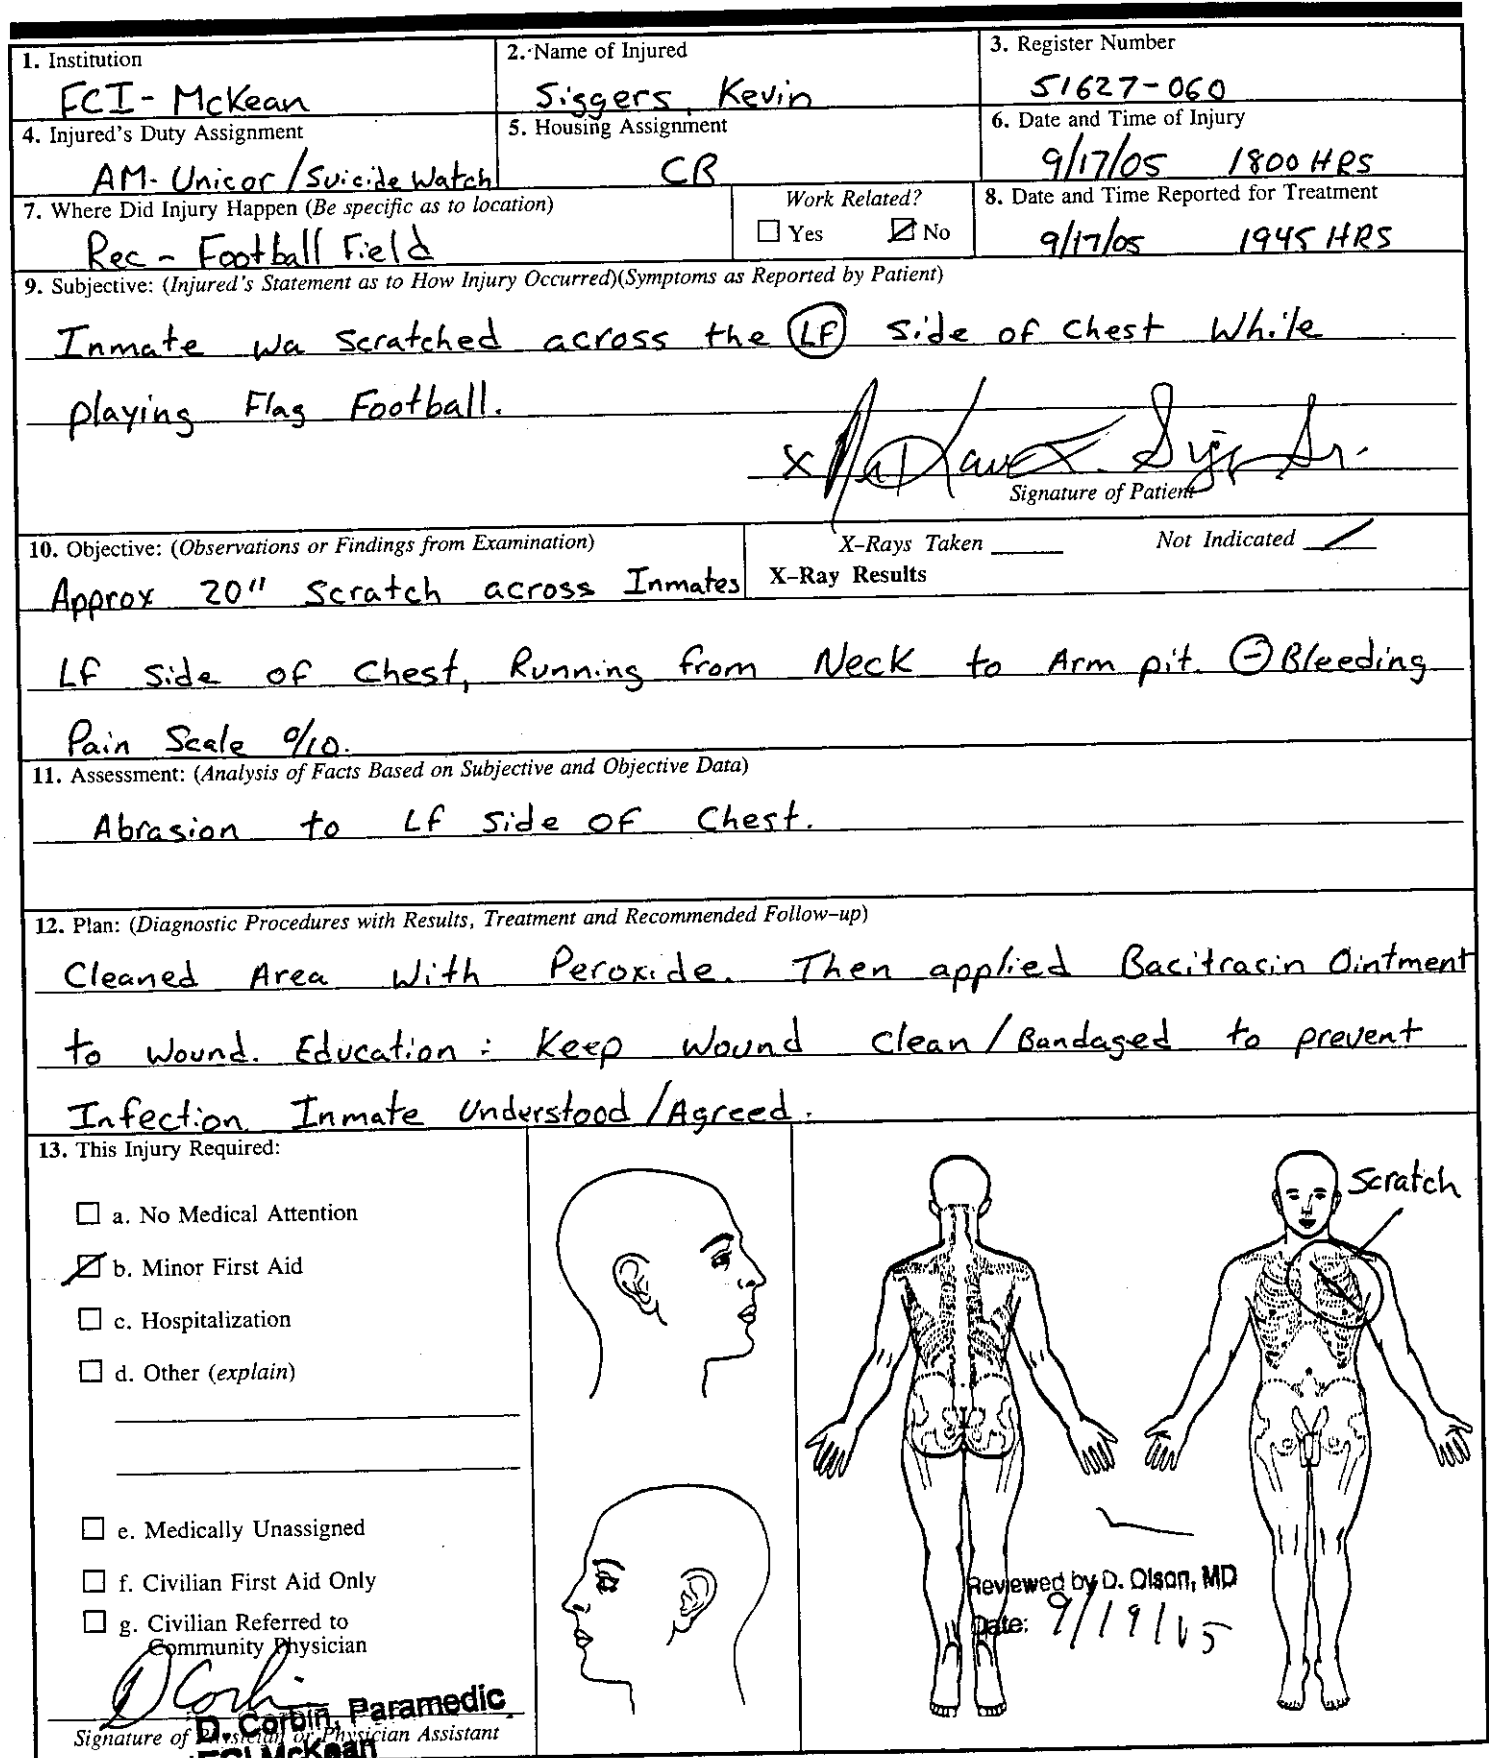 1. Institution
FCI- McKean
2. Name of Injured
Siggers, Kevin
3. Register Number
51627-060
4. Injured's Duty Assignment
AM- Unicor/Suicide Watch
5. Housing Assignment
CB
6. Date and Time of Injury
9/17/05 1800 HRS
7. Where Did Injury Happen (Be specific as to location)
Rec - Football Field
Work Related?
Yes No
8. Date and Time Reported for Treatment
9/17/05 1945 HRS
9. Subjective: (Injured's Statement as to How Injury Occurred)(Symptoms as Reported by Patient)
Inmate wa scratched across the LF side of chest While
playing Flag Football.
X
Signature of Patient
10. Objective: (Observations or Findings from Examination)
X-Rays Taken Not Indicated
X-Ray Results
Approx 20" scratch across Inmates
LF side of Chest, Running from Neck to Arm pit. ⊖ Bleeding
Pain Scale 0/10.
11. Assessment: (Analysis of Facts Based on Subjective and Objective Data)
Abrasion to LF side of Chest.
12. Plan: (Diagnostic Procedures with Results, Treatment and Recommended Follow-up)
Cleaned Area With Peroxide. Then applied Bacitracin Ointment
to wound. Education: Keep wound clean/Bandaged to prevent
Infection. Inmate Understood/Agreed.
13. This Injury Required:
a. No Medical Attention
b. Minor First Aid
c. Hospitalization
d. Other (explain)
e. Medically Unassigned
f. Civilian First Aid Only
g. Civilian Referred to
Community Physician
D Corbin
D. Corbin, Paramedic
Signature of Physician or Physician Assistant
FCI McKean
Scratch
Reviewed by D. Olson, MD
Date: 9/19/05